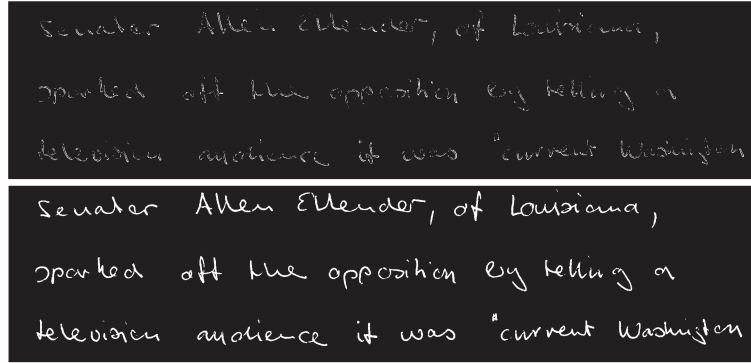 Senator Allen Ellender, of Louisiana,
sparked off the opposition by telling a
television audience it was "current Washington
Senator Allen Ellender, of Louisiana,
sparked off the opposition by telling a
television audience it was "current Washington